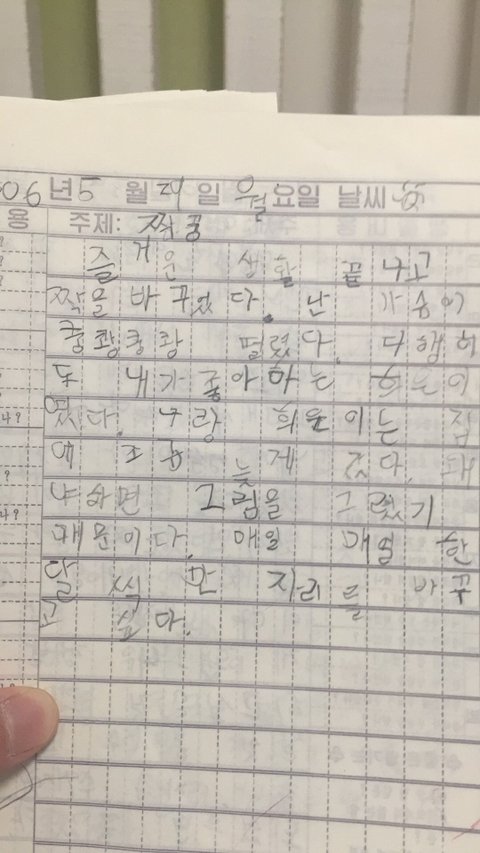 06년 5월 29일 월요일 날씨
용 주제: 짝꿍
즐거운 생활 끝나고
짝을 바꾸었다. 난 가슴이
콩쾅콩쾅 떨렸다. 다행히
도 내가 좋아하는 희은이
였다. 나랑 희은이는 집
에 조금 늦게 갔다. 왜
냐하면 그림을 그렸기
때문이다. 매일 매일 한
달 씩만 자리를 바꾸
고 싶다.